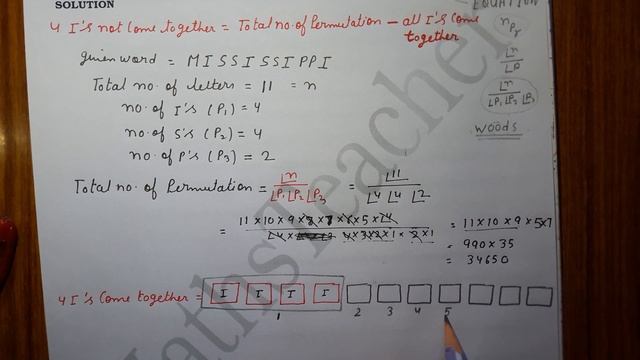 SOLUTION
EQUATION
4 I's not Come together = Total no. of Permutation - all I's Come together
nPr
given word = M I S S I S S I P P I
⌊n
⌊P
Total no. of letters = 11 = n
⌊n
⌊P1 ⌊P2 ⌊P3
no. of I's (P1) = 4
no. of S's (P2) = 4
WOODS
no. of P's (P3) = 2
Total no. of Permutation = ⌊n / ⌊P1 ⌊P2 ⌊P3 = ⌊11 / ⌊4 ⌊4 ⌊2
= 11 × 10 × 9 × 8 × 7 × 6 × 5 × ⌊4 / ⌊4 × 4 × 3 × 2 × 1 × 2 × 1 = 11 × 10 × 9 × 5 × 7
= 990 × 35
= 34650
4 I's Come together = I I I I
1 2 3 4 5
Maths Teacher